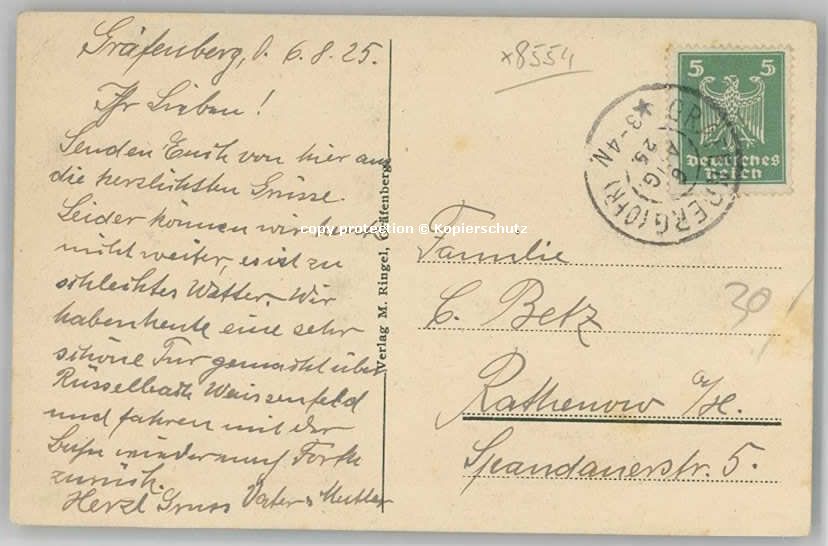 Gräfenberg, d. 6.8.25.
Ihr Lieben!
Senden Euch von hier aus
die herzlichsten Grüsse.
Leider können wir heute
nicht weiter, es ist zu
schlechtes Wetter. Wir
haben heute eine sehr
schöne Tur gemacht über
Rüsselbach Weissenfeld
und fahren mit der
Bahn wieder nach Forth
zurück.
Herzl Gruss Vater & Mutter
Verlag M. Ringel, Gräfenberg
copy protection © Kopierschutz
×8554
5 5
Deutsches
Reich
6 AUG 25
3-4 N
Familie
C. Betz
Rathenow a/H.
Spandauerstr. 5.
30